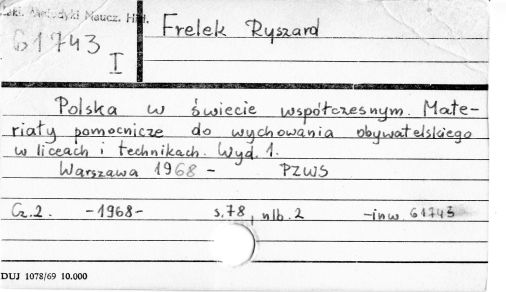 Zakł. Metodyki Naucz. Hist.
61743
I
Frelek Ryszard
Polska w świecie współczesnym. Mate-
riały pomocnicze do wychowania obywatelskiego
w liceach i technikach. Wyd. 1.
Warszawa 1968 - PZWS
Cz. 2. -1968- s. 78, nlb. 2 -inw. 61743
DUJ 1078/69 10.000